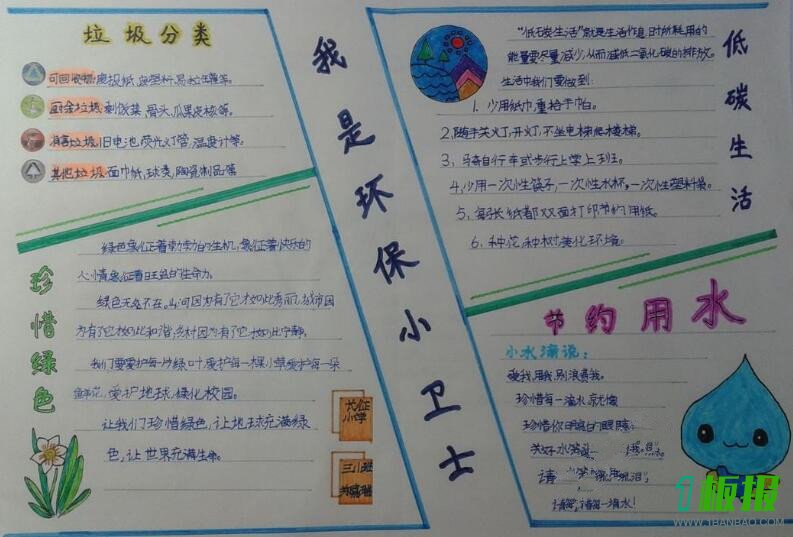 垃圾分类
可回收物:废报纸,废塑料,易拉罐等。
厨余垃圾:剩饭菜 骨头,瓜果皮核等。
有害垃圾:旧电池,荧光灯管,温度计等。
其他垃圾:面巾纸,球类,陶瓷制品等
珍惜绿色
绿色象征着勃勃的生机,象征着快乐的
心情,象征着旺盛的生命力。
绿色无处不在。山河因为有了它才如此秀丽,城市因
为有了它才如此和谐,乡村因为有了它才如此宁静。
我们要爱护每一片绿叶,爱护每一棵小草,爱护每一朵
鲜花,爱护地球,绿化校园。
让我们珍惜绿色,让地球充满绿
色,让世界充满生命。
长征
小学
三八班
我是环保小卫士
低碳生活
"低碳生活"就是生活作息时所耗用的
能量要尽量减少,从而减低二氧化碳的排放。
生活中我们要做到:
1、少用纸巾,重拾手巾。
2、随手关灯,开灯,不坐电梯爬楼梯。
3、骑自行车或步行上学上班。
4、少用一次性筷子,一次性水杯,一次性塑料袋。
5、每张纸都双面打印节约用纸。
6、种花,种树,美化环境。
节约用水
小水滴说:
爱我,用我,别浪费我。
珍惜每一滴水,就像
珍惜你明亮的眼睛
关好水
请
一滴水!
1板报
WWW.1BANBAO.COM